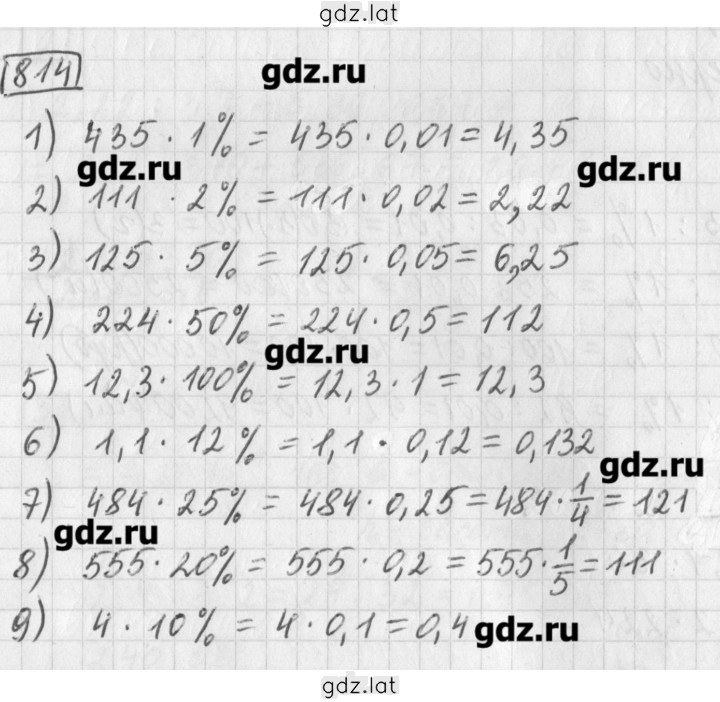 gdz.lat
814
gdz.ru
1) 435 · 1% = 435 · 0,01 = 4,35
gdz.ru
gdz.ru
2) 111 · 2% = 111 · 0,02 = 2,22
3) 125 · 5% = 125 · 0,05 = 6,25
4) 224 · 50% = 224 · 0,5 = 112
gdz.ru
5) 12,3 · 100% = 12,3 · 1 = 12,3
6) 1,1 · 12% = 1,1 · 0,12 = 0,132
gdz.ru
7) 484 · 25% = 484 · 0,25 = 484 · 1/4 = 121
gdz.ru
8) 555 · 20% = 555 · 0,2 = 555 · 1/5 = 111
9) 4 · 10% = 4 · 0,1 = 0,4
gdz.ru
gdz.lat